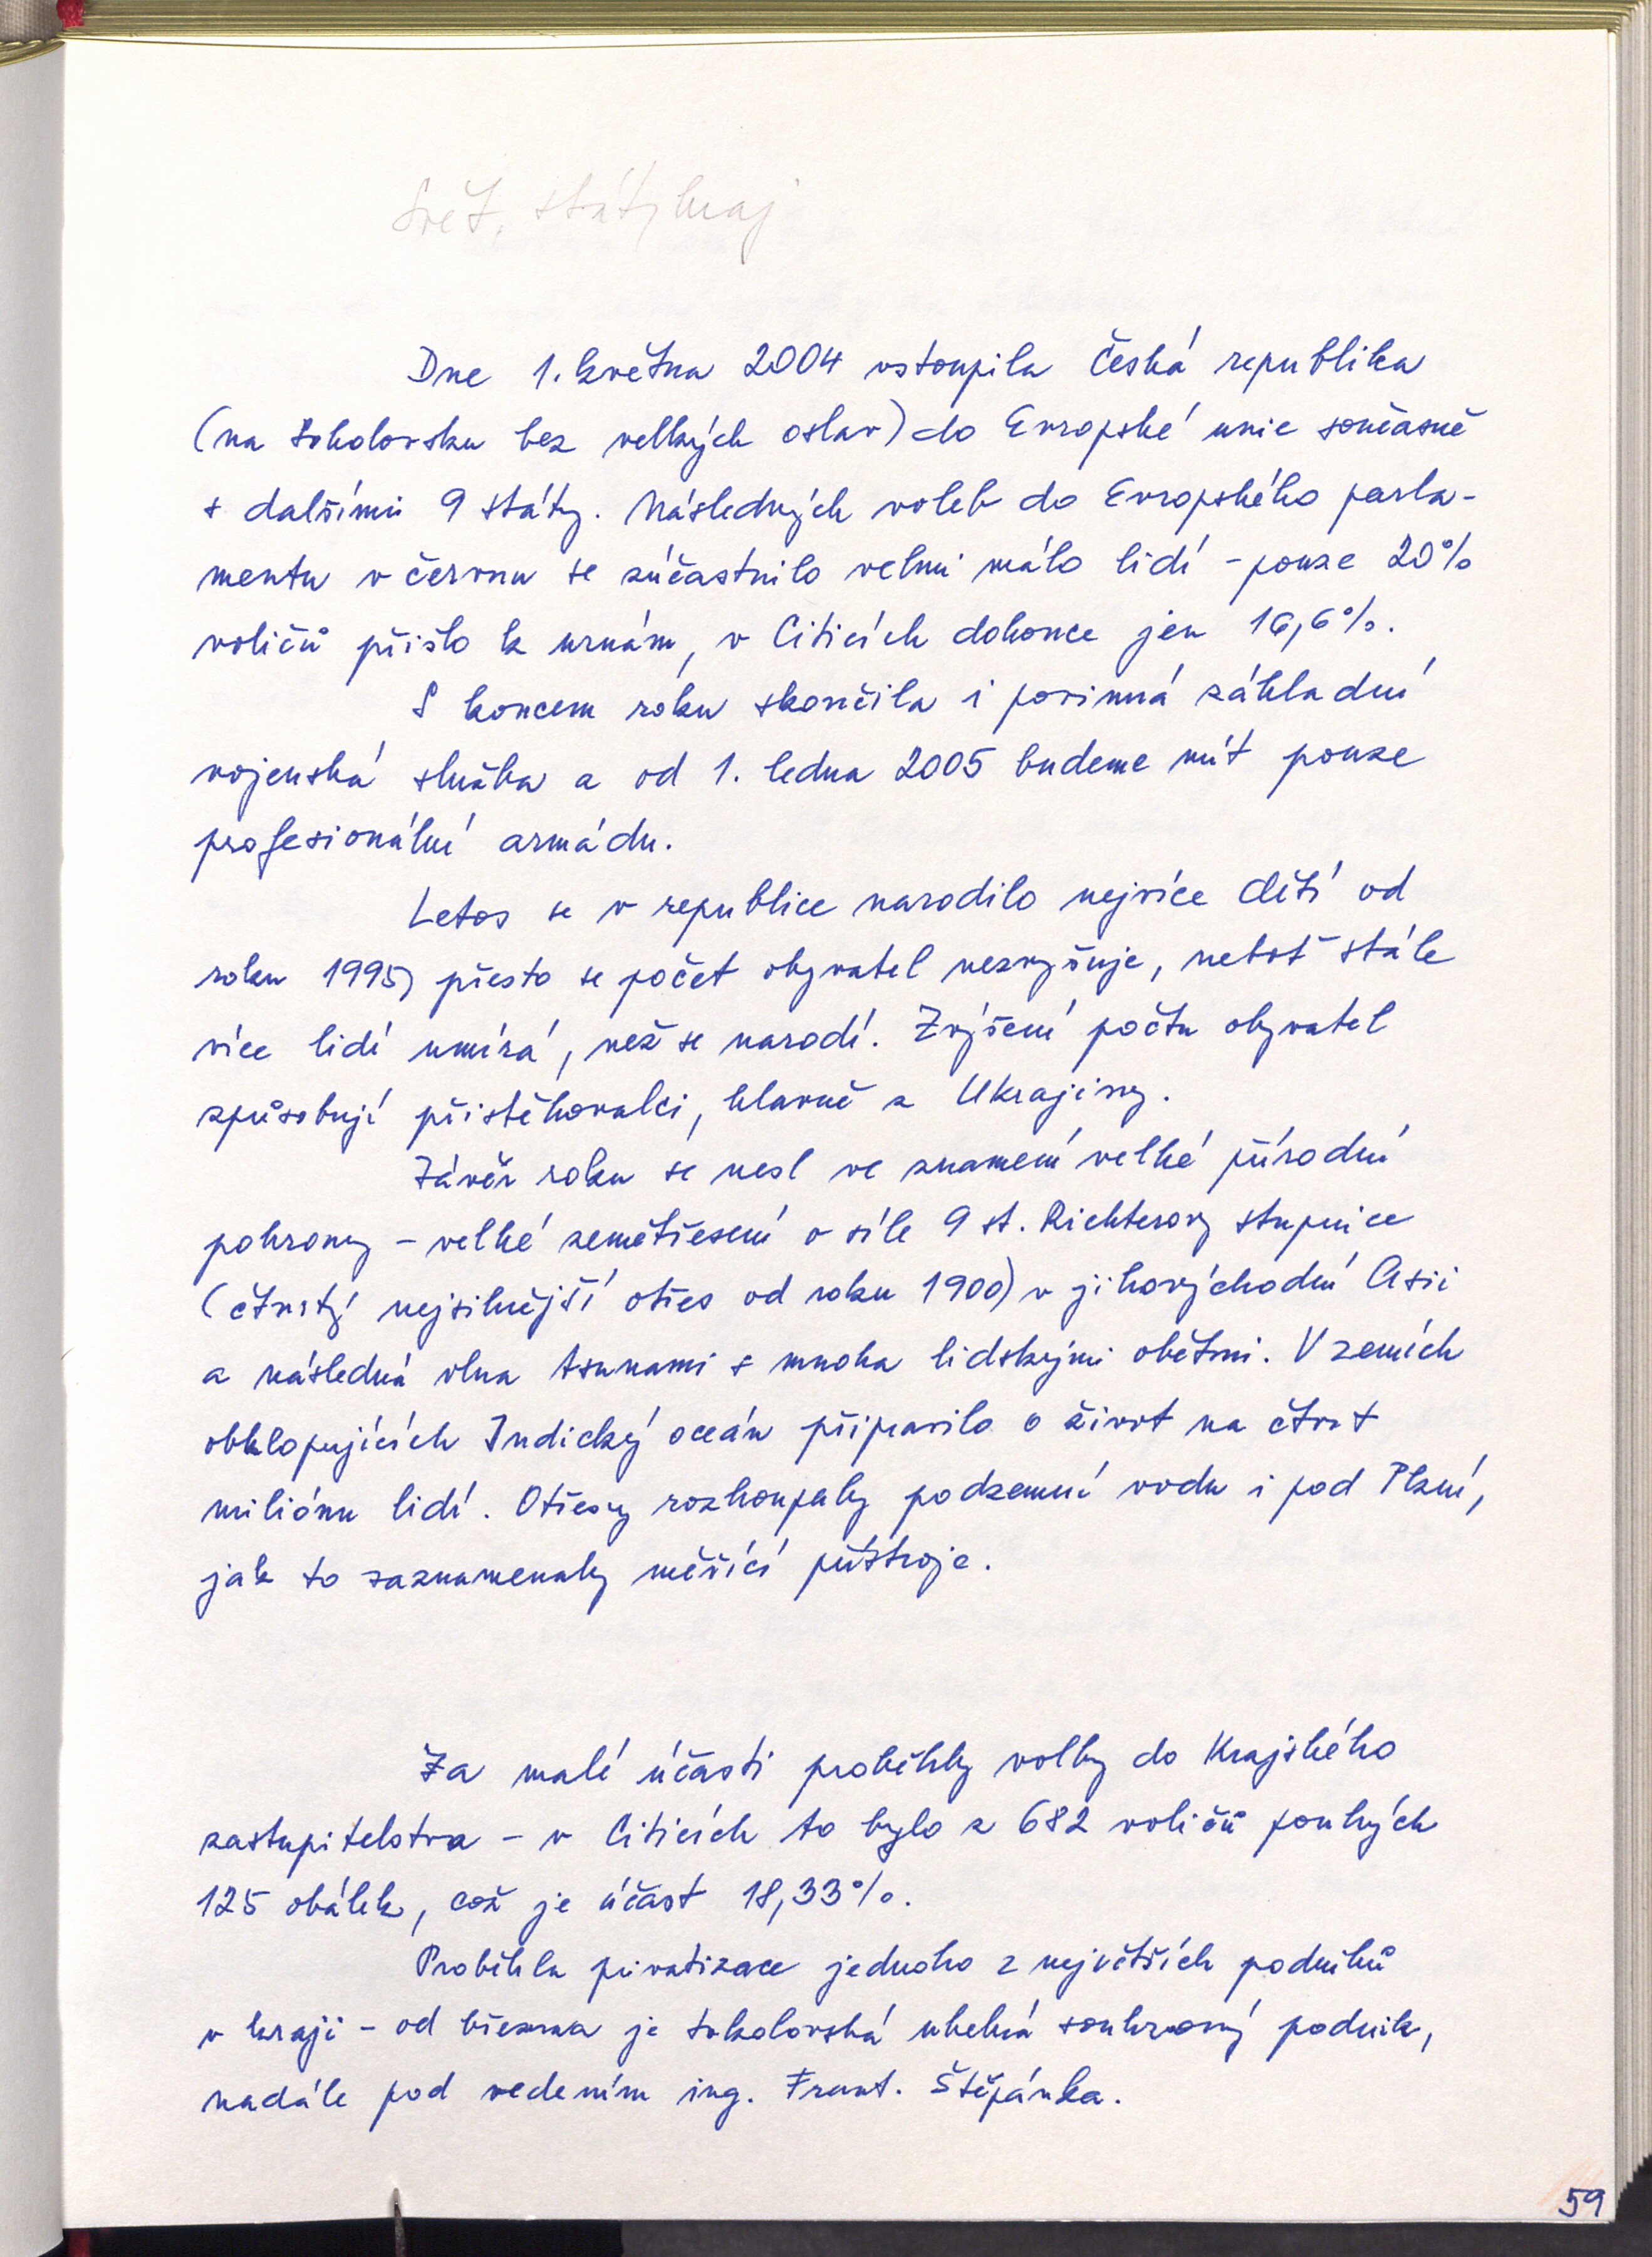 Svět, stát, kraj
Dne 1. května 2004 vstoupila Česká republika
(na Sokolovsku bez velkých oslav) do Evropské unie současně
s dalšími 9 státy. Následných voleb do Evropského parla-
mentu v červnu se zúčastnilo velmi málo lidí - pouze 20%
voličů přišlo k urnám, v Citicích dokonce jen 16,6%.
S koncem roku skončila i povinná základní
vojenská služba a od 1. ledna 2005 budeme mít pouze
profesionální armádu.
Letos se v republice narodilo nejvíce dětí od
roku 1995, přesto se počet obyvatel nezvyšuje, neboť stále
více lidí umírá, než se narodí. Zvýšení počtu obyvatel
způsobují přistěhovalci, hlavně z Ukrajiny.
Závěr roku se nesl ve znamení velké přírodní
pohromy - velké zemětřesení o síle 9 st. Richterovy stupnice
(čtvrtý nejsilnější otřes od roku 1900) v jihovýchodní Asii
a následná vlna tsunami s mnoha lidskými oběťmi. V zemích
obklopujících Indický oceán připravila o život na čtvrt
miliónu lidí. Otřesy rozhoupaly podzemní vodu i pod Plzní,
jak to zaznamenaly měřící přístroje.
Za malé účasti proběhly volby do Krajského
zastupitelstva - v Citicích to bylo z 682 voličů pouhých
125 obálek, což je účast 18,33%.
Proběhla privatizace jednoho z největších podniků
v kraji - od března je Sokolovská uhelná soukromý podnik,
nadále pod vedením ing. Frant. Štěpánka.
59